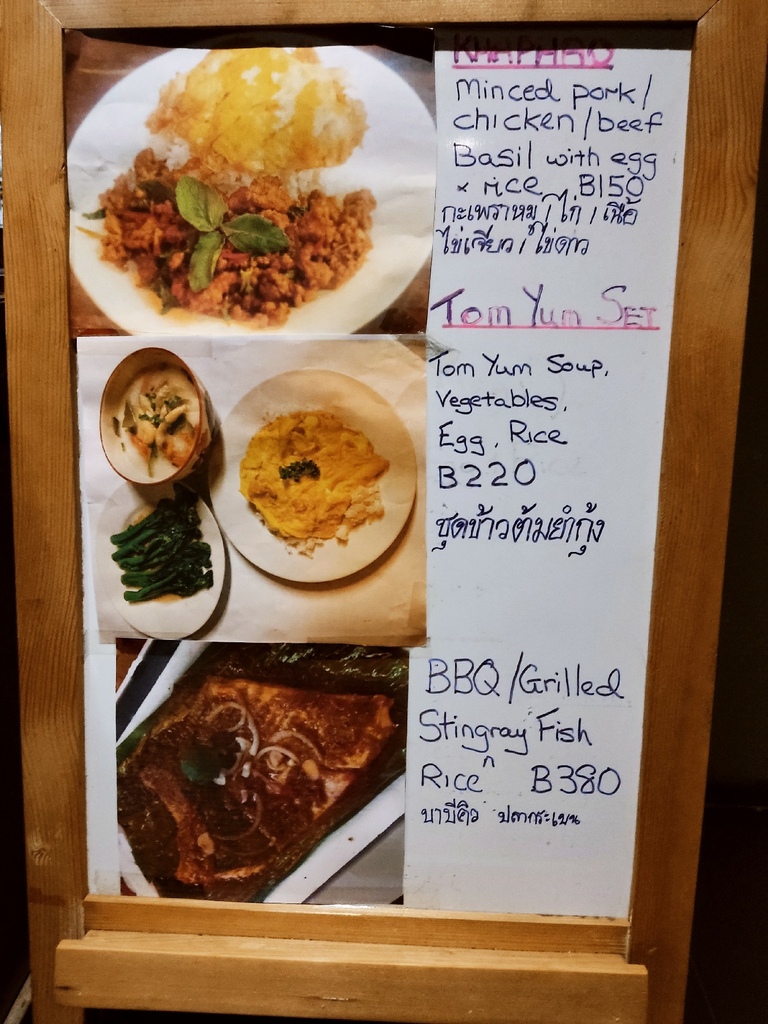 KHAPHAO
Minced pork/
chicken/beef
Basil with egg
× rice B150
กะเพราหมู / ไก่ / เนื้อ
ไข่เจียว / ไข่ดาว
Tom Yum SET
Tom Yum Soup,
Vegetables,
Egg, Rice
B220
ชุดข้าวต้มยำกุ้ง
BBQ/Grilled
Stingray Fish
^
Rice B380
บาบีคิว ปลากระเบน